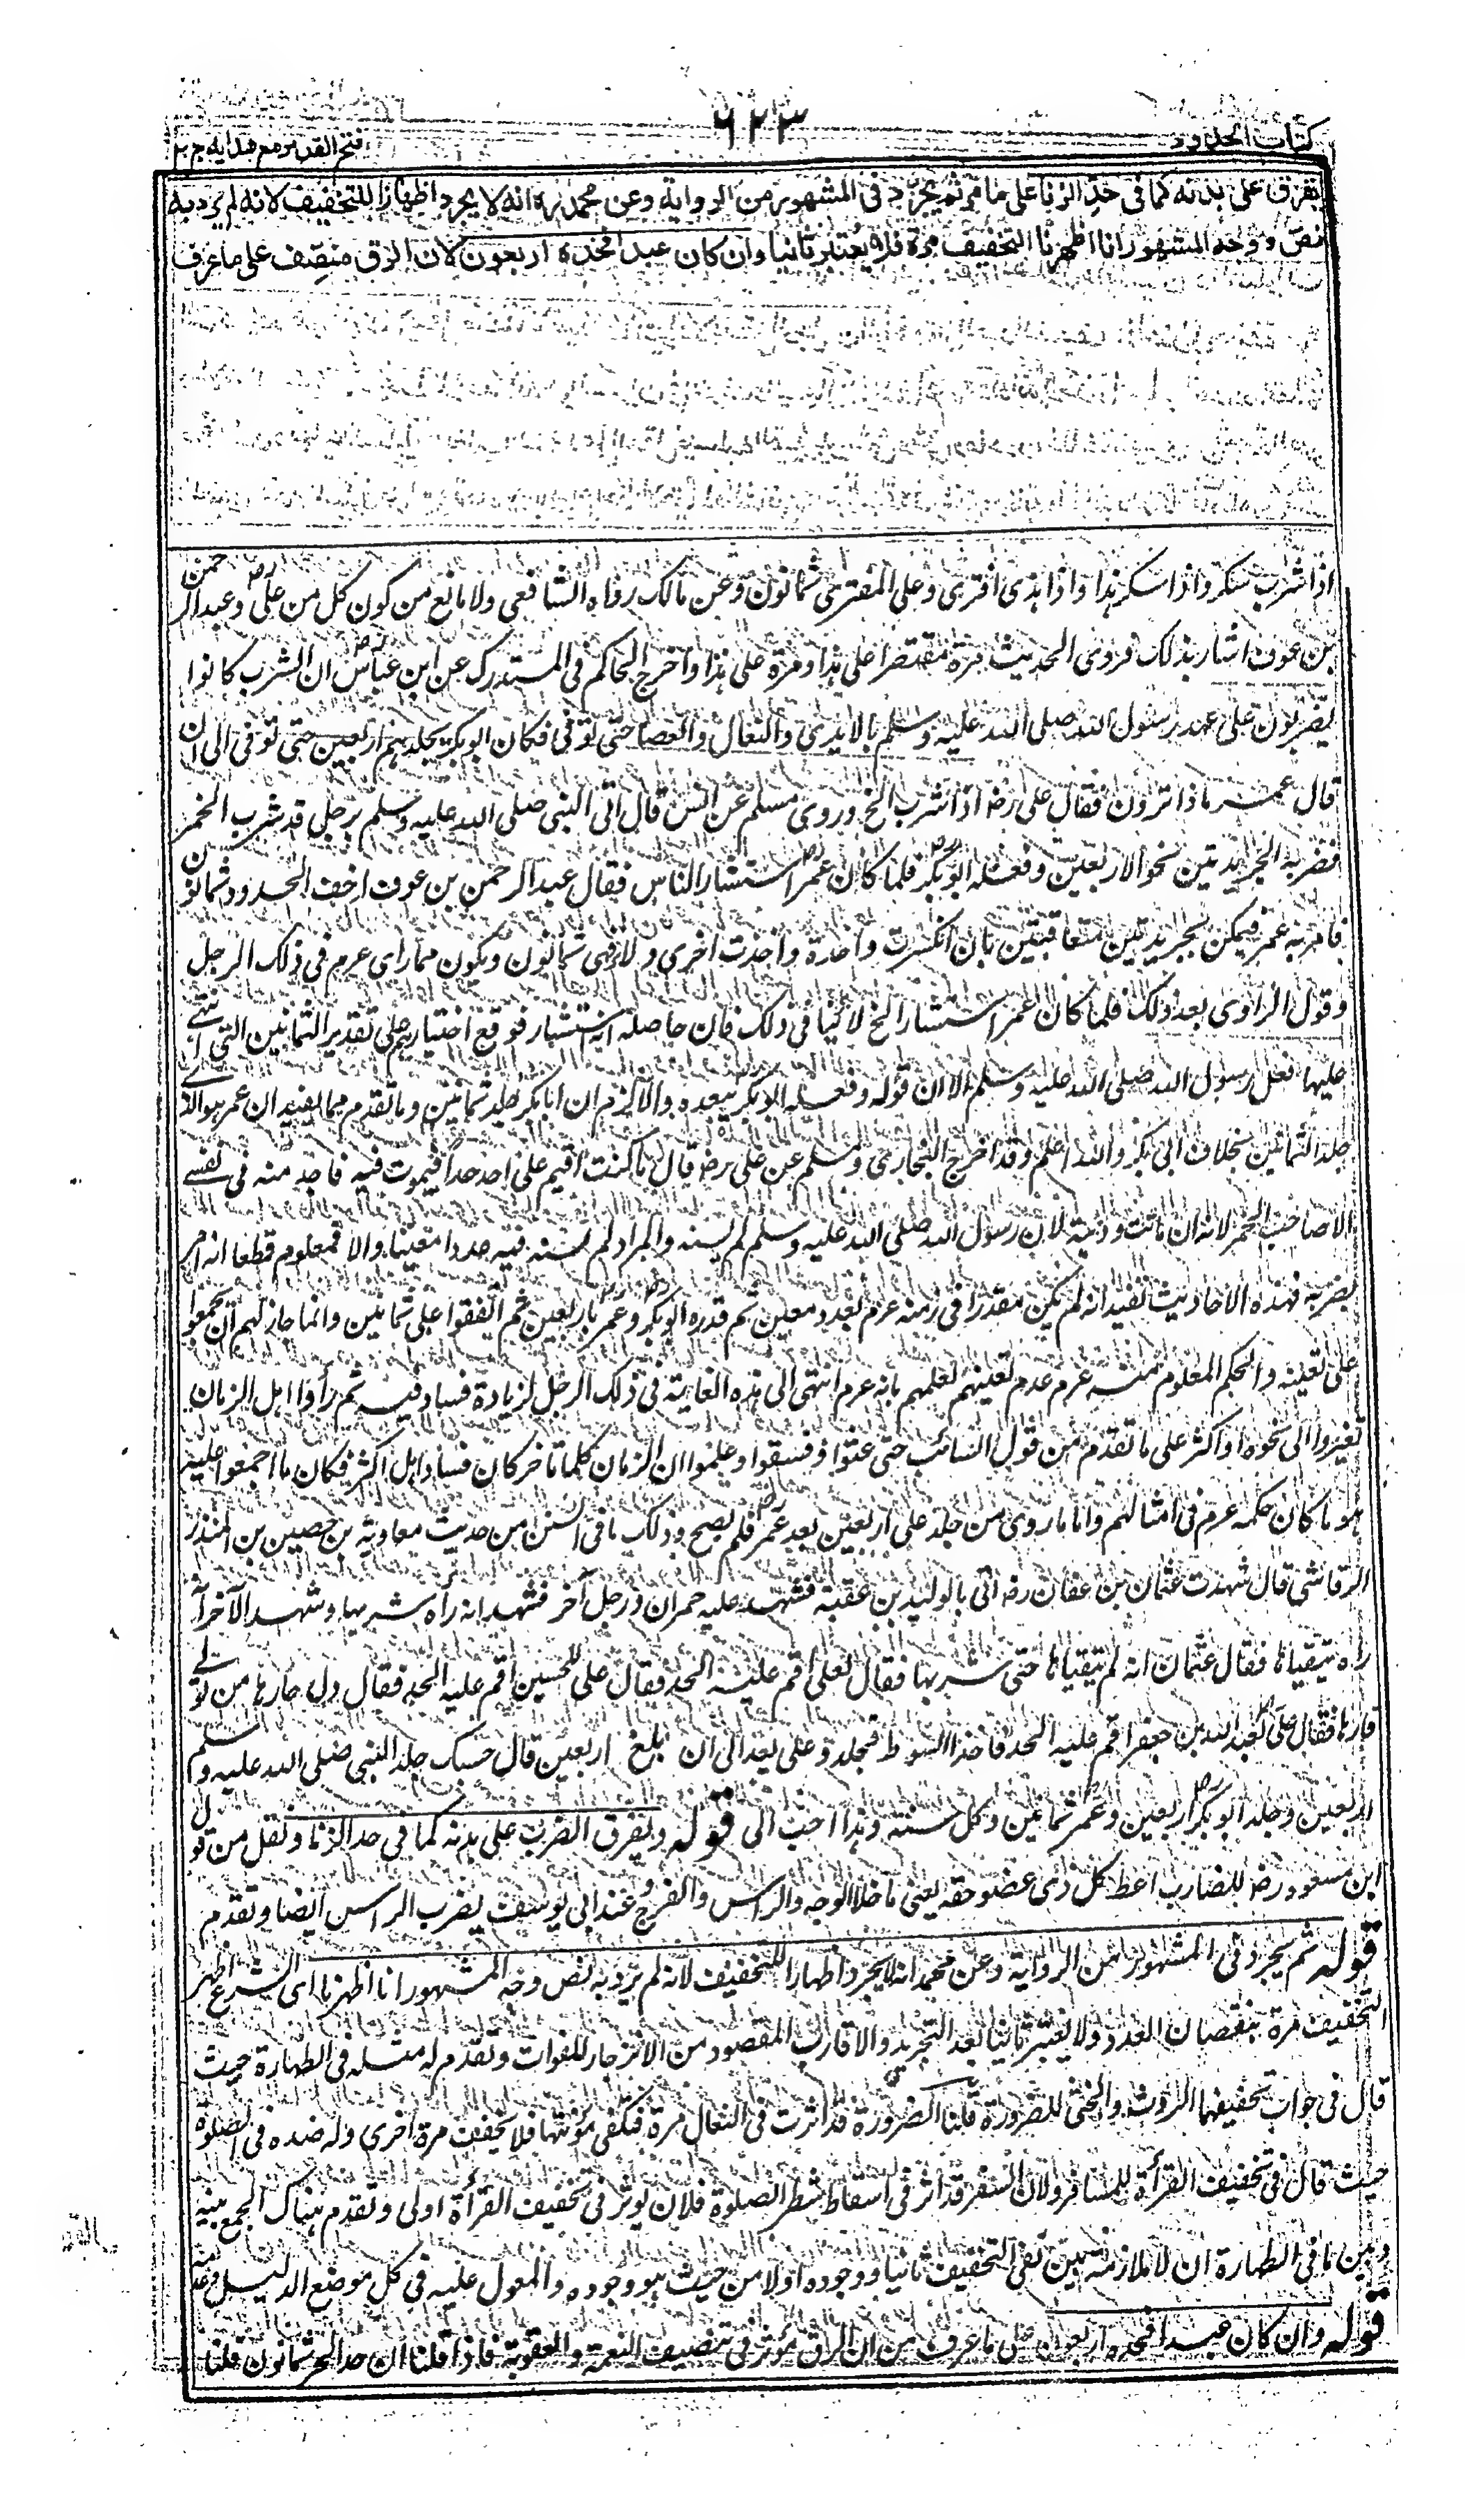 كتاب الحدود
٦٢٣
فتح القدير مع هدايه ج ٢
يفرق على بدنه كما فى حد الزنا على ما مر ثم يجرد فى المشهور من الرواية وعن محمد ره انه لا يجرد اظهارا للتخفيف لانه لم يرد به
نص ووجه المشهور انا اظهرنا التخفيف مرة فلا يعتبر ثانيا وان كان عبدا فحده اربعون لان الرق منصف على ما عرف
اذا شرب سكر واذا سكر هذى واذا هذى افترى وعلى المفترى ثمانون وعن مالك رواه الشافعى ولا مانع من كون كل من على رض وعبد الرحمن
بن عوف اشار بذلك فروى الحديث مرة مقتصرا على هذا ومرة على هذا واخرج الحاكم فى المستدرك عن ابن عباس رض ان الشرب كانوا
يضربون على عهد رسول الله صلى الله عليه وسلم بالايدى والنعال والعصا حتى توفى فكان ابو بكر يجلدهم اربعين حتى توفى الى ان
قال عمر ماذا ترون فقال على رض اذا شرب الخ وروى مسلم عن انس قال اتى النبى صلى الله عليه وسلم برجل قد شرب الخمر
فضربه بجريدتين نحو الاربعين وفعله ابو بكر رض فلما كان عمر رض استشار الناس فقال عبد الرحمن بن عوف اخف الحدود ثمانون
فامر به عمر فيمكن بجريدتين متعاقبتين بان انكسرت واحدة واخذت اخرى والا فهى ثمانون ويكون مما راى عرم فى ذلك الرجل
وقول الراوى بعد ذلك فلما كان عمر استشار الخ لا ينافى ذلك فان حاصله انه استشار فوقع اختيارهم على تقدير الثمانين التى انتهى
عليها فعل رسول الله صلى الله عليه وسلم الا ان قوله وفعله ابو بكر يبعده والا لزم ان ابا بكر جلد ثمانين وما تقدم مما يفيد ان عمر هو الذى
جلد الثمانين بخلاف ابى بكر والله اعلم وقد اخرج البخارى ومسلم عن على رض قال ما كنت اقيم على احد حدا فيموت فيه فاجد منه فى نفسى
الا صاحب الخمر لانه ان مات وديته لان رسول الله صلى الله عليه وسلم لم يسنه والمراد لم يسنه فيه عددا معينا والا فمعلوم قطعا انه امر
بضربه فهذه الاحاديث تفيد انه لم يكن مقدرا فى زمنه عرم بعدد معين ثم قدره ابو بكر رض وعمر رض باربعين ثم اتفقوا على ثمانين وانما جاز لهم ان يجمعوا
على تعينه والحكم المعلوم منه عرم عدم تعينهم لعلمهم بانه عرم انتهى الى هذه الغاية فى ذلك الرجل لزيادة فساد فيه ثم راوا اهل الزمان
تغيروا الى نحوه او اكثر على ما تقدم من قول السائب حتى عتوا وفسقوا وعلموا ان الزمان كلما تاخر كان فساد اهله اكثر فكان ما اجمعوا عليه
هو ما كان حكمه عرم فى امثالهم واما ما روى من جلد على اربعين بعد عمر رض فلم يصح وذلك ما فى السنن من حديث معاوية بن حصين بن المنذر
الرقاشى قال شهدت عثمان بن عفان رض اتى بالوليد بن عقبة فشهد عليه حمران ورجل آخر فشهد انه رآه شربها وشهد الآخر انه
رآه يتقياها فقال عثمان انه لم يتقياها حتى شربها فقال لعلى اقم عليه الحد فقال على للحسين اقم عليه الحد فقال ول حارها من تولى
قارها فقال على رض لعبد الله بن جعفر اقم عليه الحد فاخذ السوط فجلده وعلى يعد الى ان بلغ اربعين قال حسبك جلد النبى صلى الله عليه وسلم
اربعين وجلد ابو بكر رض اربعين وعمر ثمانين وكل سنة وهذا احب الى قوله ويفرق الضرب على بدنه كما فى حد الزنا ونقل من قول
ابن مسعود رض للضارب اعط كل ذى عضو حقه يعنى ما خلا الوجه والراس والفرج وعند ابى يوسف يضرب الراس ايضا وتقدم
قوله ثم يجرد فى المشهور من الرواية وعن محمد انه لا يجرد اظهارا للتخفيف لانه لم يرد به نص وجه المشهور انا اظهرنا اى الشرع اظهر
التخفيف مرة بنقصان العدد ولا يعتبر ثانيا بعد التجريد والا قارب المقصود من الانزجار للفوات وتقدم له مثله فى الطهارة حيث
قال فى جواب تخفيفهما الروث والخثى للضرورة قلنا الضرورة قد اثرت فى النعال مرة فتكفى مؤنتها فلا يخفف مرة اخرى وله ضده فى الصلوة
حيث قال فى تخفيف القرأة للمسافر ولان السفر قد اثر فى اسقاط شطر الصلوة فلان يوثر فى تخفيف القرأة اولى وتقدم هناك الجمع بينه
وبين ما فى الطهارة ان لا ملازمة بين نفى التخفيف ثانيا ووجوده اولا من حيث هو وجوده والمعول عليه فى كل موضع الدليل
قوله وان كان عبدا فحده اربعون على ما عرف من ان الرق مؤثر فى تنصيف النعمة والعقوبة فاذا قلنا ان حد الحر ثمانون قلنا